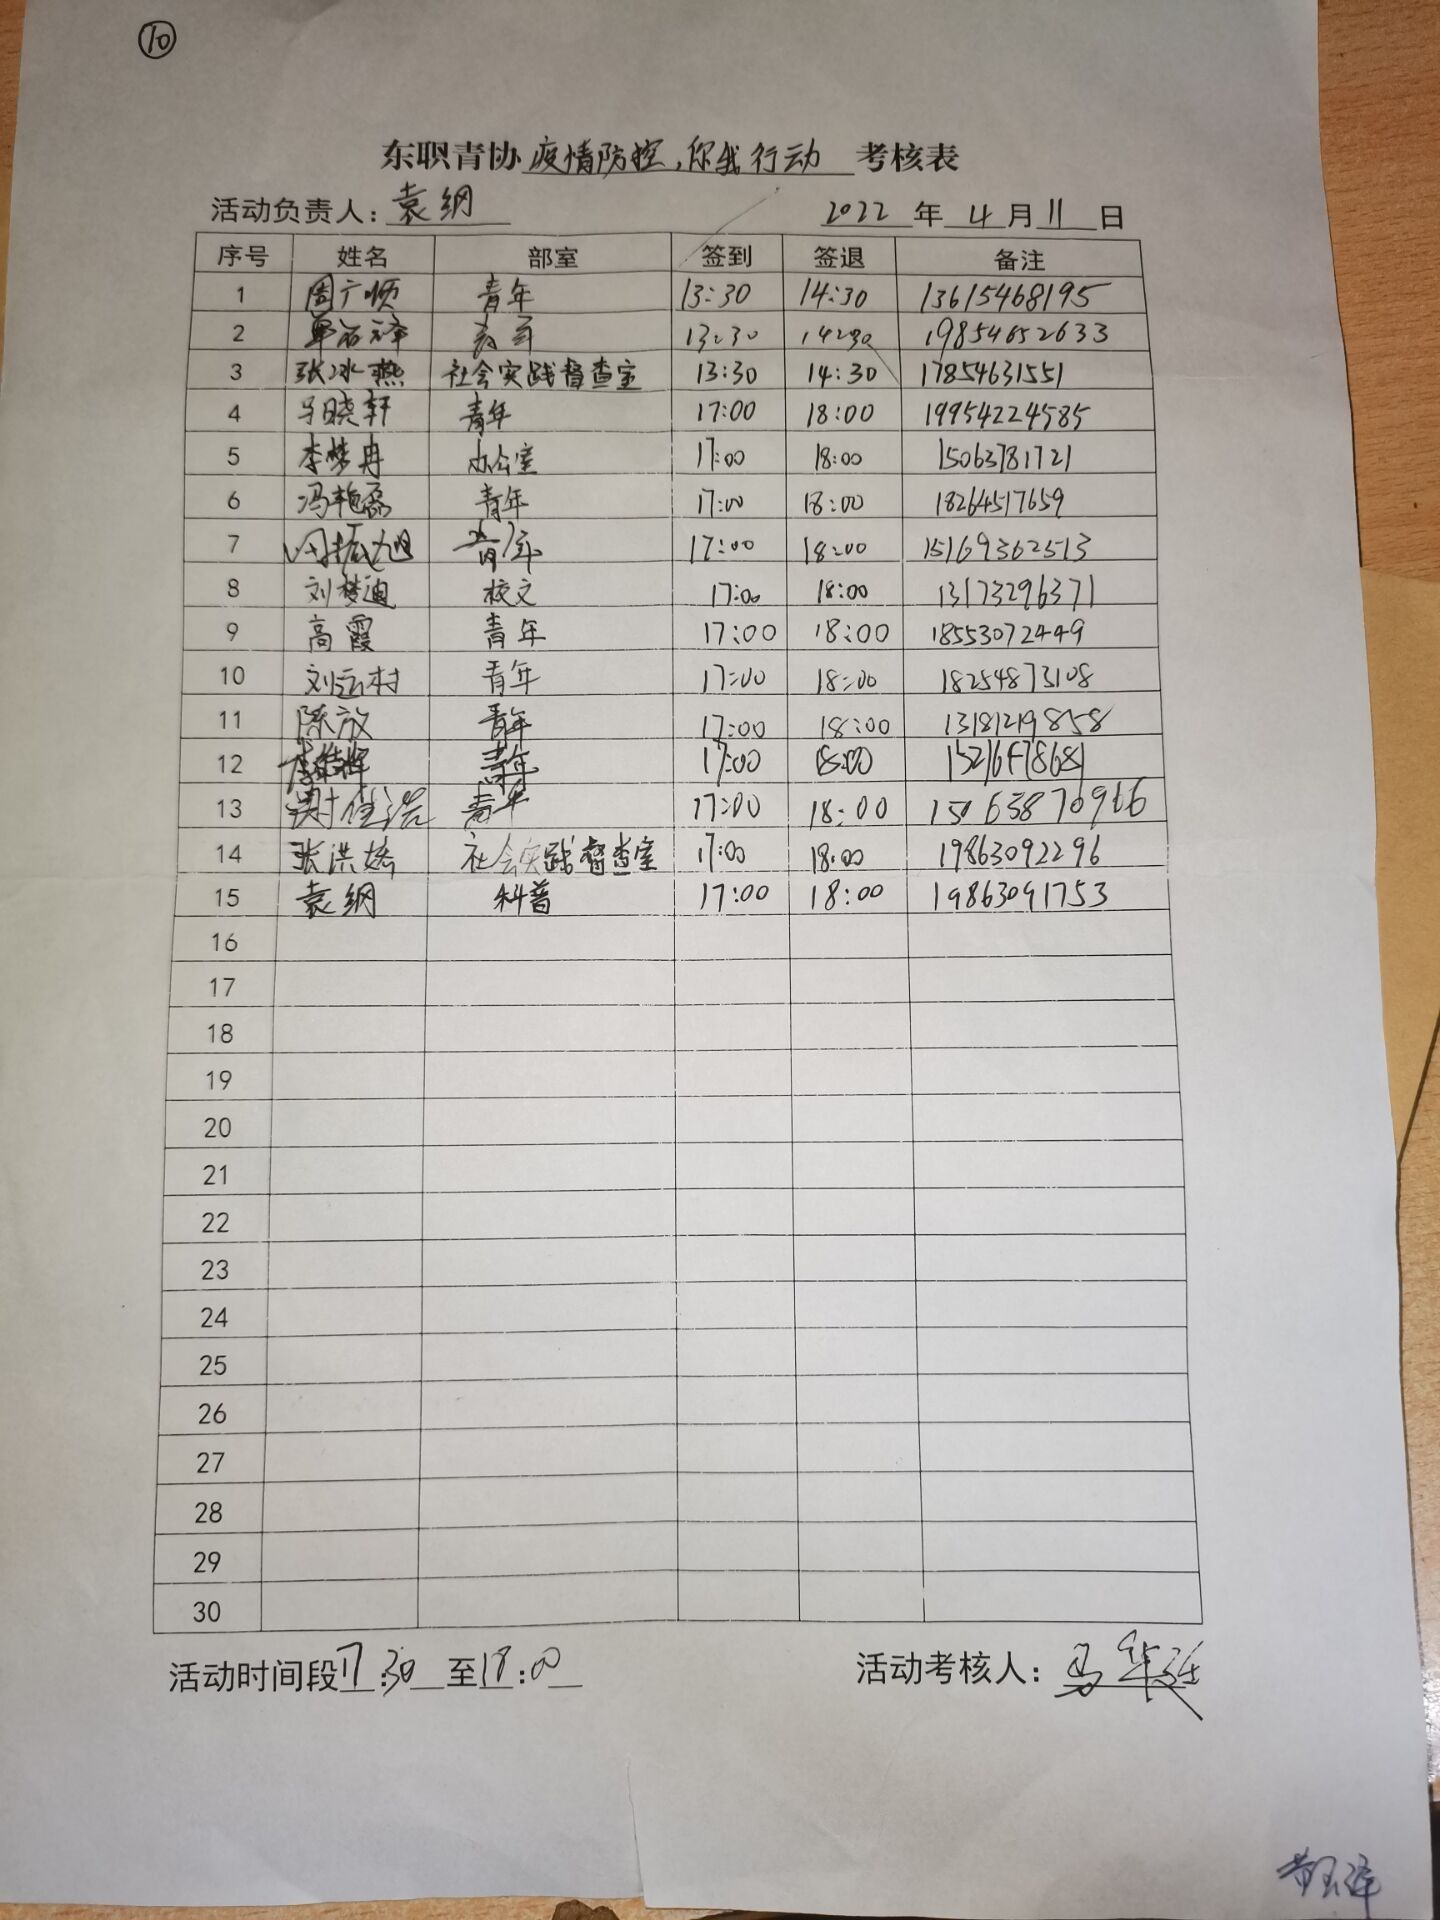 ⑩
东职青协疫情防控,你我行动 考核表
活动负责人:袁纲 2022 年 4 月 11 日
序号 姓名 部室 签到 签退 备注
1 周广顺 青年 13:30 14:30 13615468195
2 13:30 14:30 19854652633
3 张冰燕 社会实践督查室 13:30 14:30 17854631551
4 马晓轩 青年 17:00 18:00 19954224585
5 李梦冉 办公室 17:00 18:00 15063781721
6 冯艳磊 青年 17:00 18:00 18264517659
7 周振旭 青年 17:00 18:00 15169362513
8 刘梦迪 校文 17:00 18:00 13173296371
9 高霞 青年 17:00 18:00 18553072449
10 刘远村 青年 17:00 18:00 18254873108
11 陈放 青年 17:00 18:00 13181219858
12 青年 17:00 18:00
13 谢佳浩 青年 17:00 18:00 15063870966
14 张洪娇 社会实践督查室 17:00 18:00 19863092296
15 袁纲 科普 17:00 18:00 19863091753
16
17
18
19
20
21
22
23
24
25
26
27
28
29
30
活动时间段17:30至18:00 活动考核人:马华廷